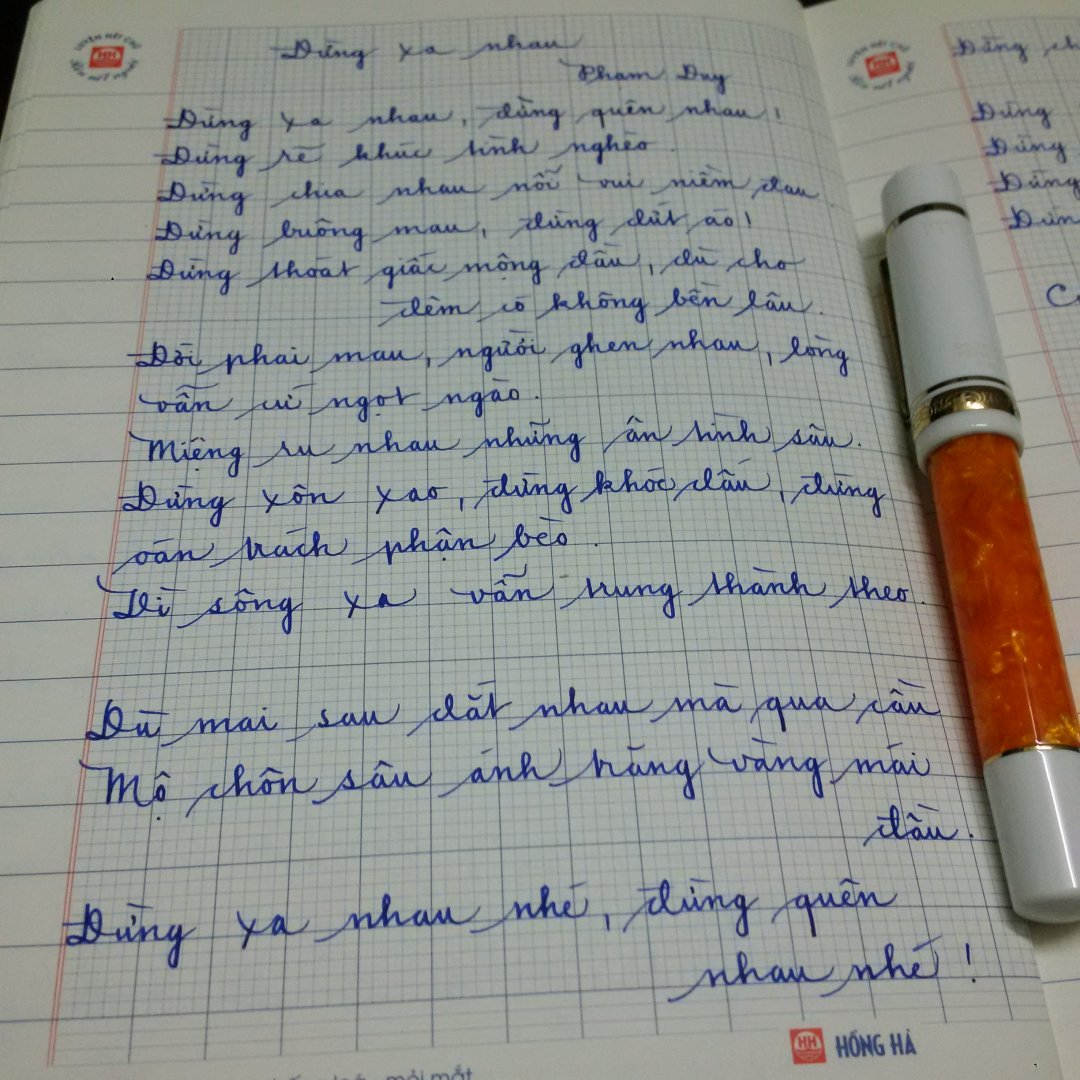 LUYỆN NÉT CHỮ
RÈN NẾT NGƯỜI
HH
Đừng xa nhau
Phạm Duy
Đừng xa nhau, đừng quên nhau,
Đừng rẽ khúc tình nghèo.
Đừng chia nhau nỗi vui niềm đau
Đừng buông mau, đừng dứt áo!
Đừng thoát giấc mộng đầu, dù cho
đêm có không bền lâu.
Đời phai mau, người ghen nhau, lòng
vẫn cứ ngọt ngào.
Miệng ru nhau những ân tình sâu.
Đừng xôn xao, đừng khóc dấu, đừng
oán trách phận bèo.
Vì sông xa vẫn trung thành theo.
Dù mai sau dắt nhau mà qua cầu
Mộ chôn sâu ánh trăng vàng mái
đầu.
Đừng xa nhau nhé, đừng quên
nhau nhé!
HH HỒNG HÀ
LUYỆN NÉT CHỮ
RÈN NẾT NGƯỜI
HH
Đừng
Đừng
Đừng
Đừng